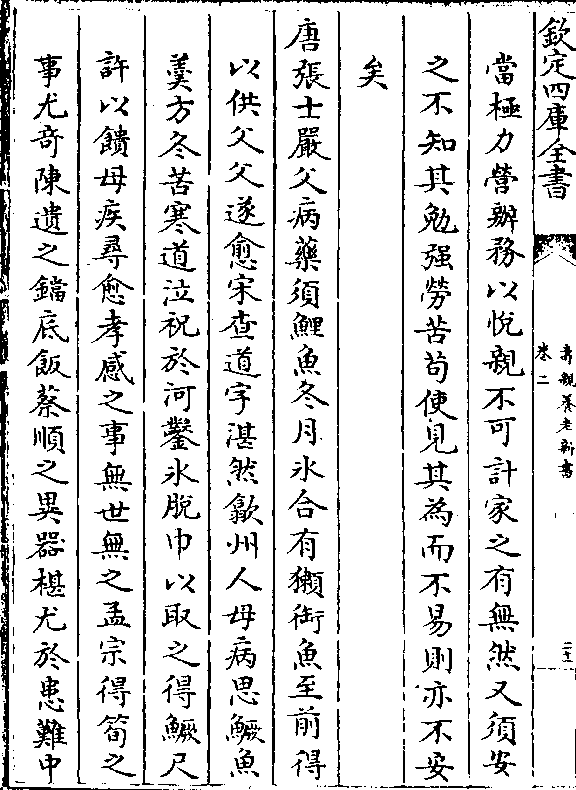 欽定四庫全書
壽親養老新書
卷二
當極力營辦務以悅親不可計家之有無然又須安
之不知其勉强勞苦苟使見其為而不易則亦不安
矣
唐張士嚴父病藥須鯉魚冬月氷合有獺銜魚至前得
以供父父遂愈宋查道字湛然歙州人母病思鱖魚
羮方冬苦寒道泣祝於河鑿氷脫巾以取之得鱖尺
許以饋母疾尋愈孝感之事無世無之孟宗得筍之
事尤竒陳遺之鐺底飯蔡順之異器椹尤於患難中